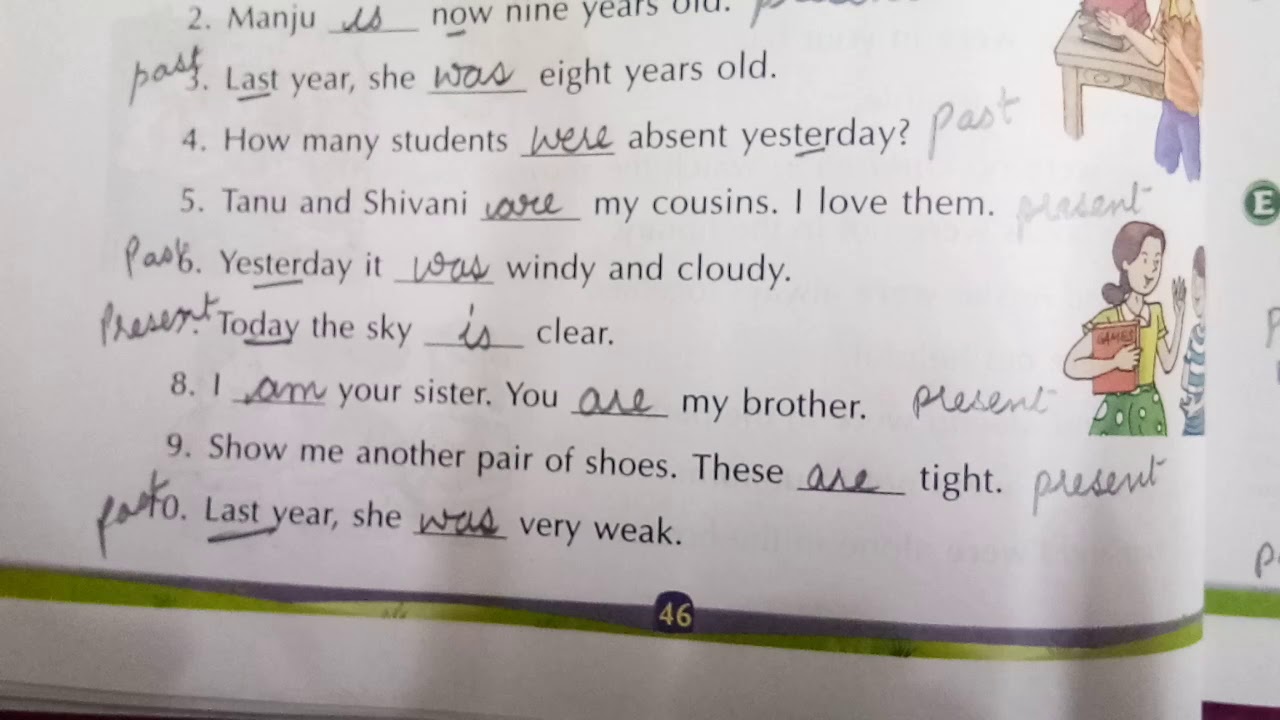 2. Manju is now nine years old. present
past 3. Last year, she was eight years old.
4. How many students were absent yesterday? Past
5. Tanu and Shivani are my cousins. I love them. present
Past 6. Yesterday it was windy and cloudy.
Present. Today the sky is clear.
8. I am your sister. You are my brother. present
GAMES
9. Show me another pair of shoes. These are tight. present
past 10. Last year, she was very weak.
46
E